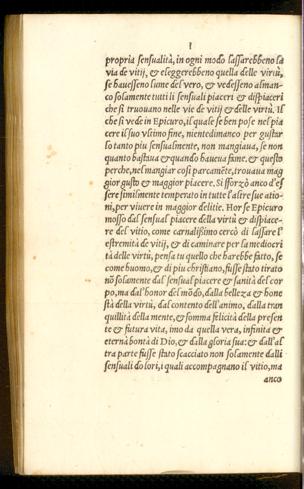 propria sensualità, in ogni modo lassarebbeno la
via de vitij, & eleggerebbeno quella delle virtù,
se havesseno lume del vero, & vedesseno alman-
co solamente tutti li sensuali piaceri & dispiaceri
che si truovano nelle vie de vitij & delle virtù. Il
che si vede in Epicuro, il quale se ben pose nel pia
cere il suo ultimo fine, nientedimanco per gustar
lo tanto piu sensualmente, non mangiava, se non
quanto bastava & quando haveva fame. & questo
perche, nel mangiar cosi parcamēte, trovava mag
gior gusto & maggior piacere. Si sforzò anco d'es
sere similmente temperato in tutte l'altre sue atio-
ni, per vivere in maggior delitie. Hor se Epicuro
mosso dal sensual piacere della virtù & dispiace-
re del vitio, come carnalissimo cercò di lassare l'
estremità de vitij, & di caminare per la mediocri
tà delle virtù, pensa tu quello che harebbe fatto, se
come huomo, & di piu christiano, fusse stato tirato
nō solamente dal sensual piacere & sanità del cor
po, ma dal'honor del mōdo, dalla bellezza & hone
stà della virtù, dal contento dell'animo, dalla tran
quillità della mente, & somma felicità della presen
te & futura vita, imo da quella vera, infinita &
eterna bontà di Dio, & dalla gloria sua: & dall'al
tra parte fusse stato scacciato non solamente dalli
sensuali dolori, i quali accompagnano il vitio, ma
anco